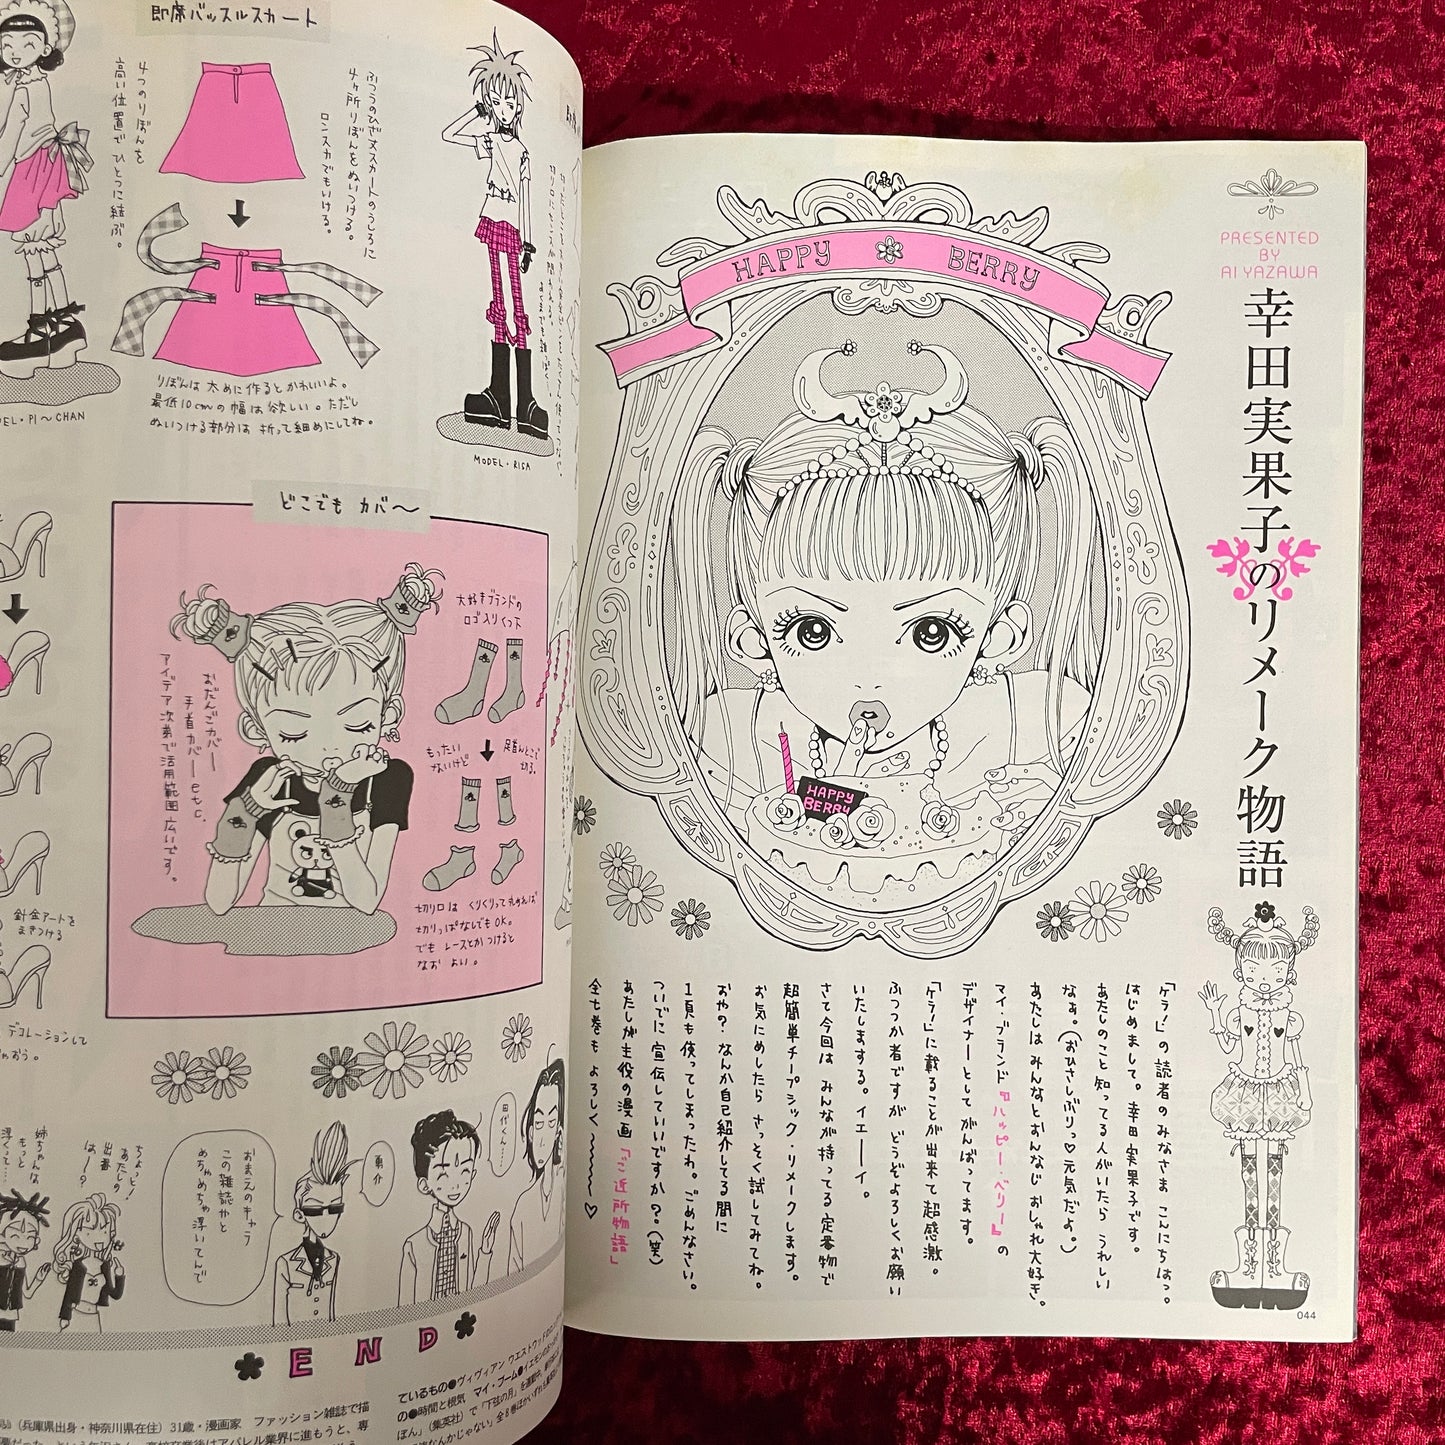 PRESENTED
BY
AI YAZAWA
幸田実果子のリメーク物語
HAPPY BERRY
HAPPY
BERRY
「ケラ!」の読者のみなさま こんにちはっ。
はじめまして。幸田実果子です。
あたしのこと知ってる人がいたら うれしい
なぁ。(おひさしぶりっ♡元気だよ。)
あたしは みんなとおんなじ おしゃれ大好き。
マイ・ブランド『ハッピー・ベリー』の
デザイナーとして がんばってます。
「ケラ!」に載ることが出来て 超感激。
ふつつか者ですが どうぞよろしくお願い
いたしまする。イエーイ。
さて今回は みんなが持ってる定番物で
超簡単チープシック・リメークします。
お気にめしたら さっそく試してみてね。
おや? なんか自己紹介してる間に
1頁も使ってしまったわ。ごめんなさい。
ついでに宣伝していいですか?(笑)
あたしが主役の漫画「ご近所物語」
全七巻も よろしく〜♡
044
即席バッスルスカート
ふつうのひざ丈スカートのうしろに
4ヶ所りぼんをぬいつける。
ロンスカでもいける。
4つのりぼんを
高い位置で ひとつに結ぶ。
りぼんは 太めに作るとかわいいよ。
最低10cmの幅は欲しい。ただし
ぬいつける部分は 折って細めにしてね。
PI〜CHAN
MODEL・RISA
どこでも カバ〜
大好きブランドの
ロゴ入りくつ下
もったい
ないけど
足首んとこで
切る。
おだんごカバー
手首カバー etc.
アイデア次第で活用範囲 広いです。
切り口は くりくりって丸めれば
切りっぱなしでもOK。
でも レースとか つけると
なお よい。
針金アートを
まきつける
デコレーションして
田代くん…
勇介
おまえのキャラ
この雑誌かと
めちゃめちゃ浮いてんで
ちょっと!
あたしの
出番
は―?
姉ちゃんは
もっと
浮くって…
END
ているもの●ヴィヴィアン ウエストウッドの
の●時間と根気 マイ・ブーム●イエモンの
ぼん」(集英社)で「下弦の月」を連載中。
(兵庫県出身・神奈川県在住)31歳・漫画家 ファッション雑誌で描